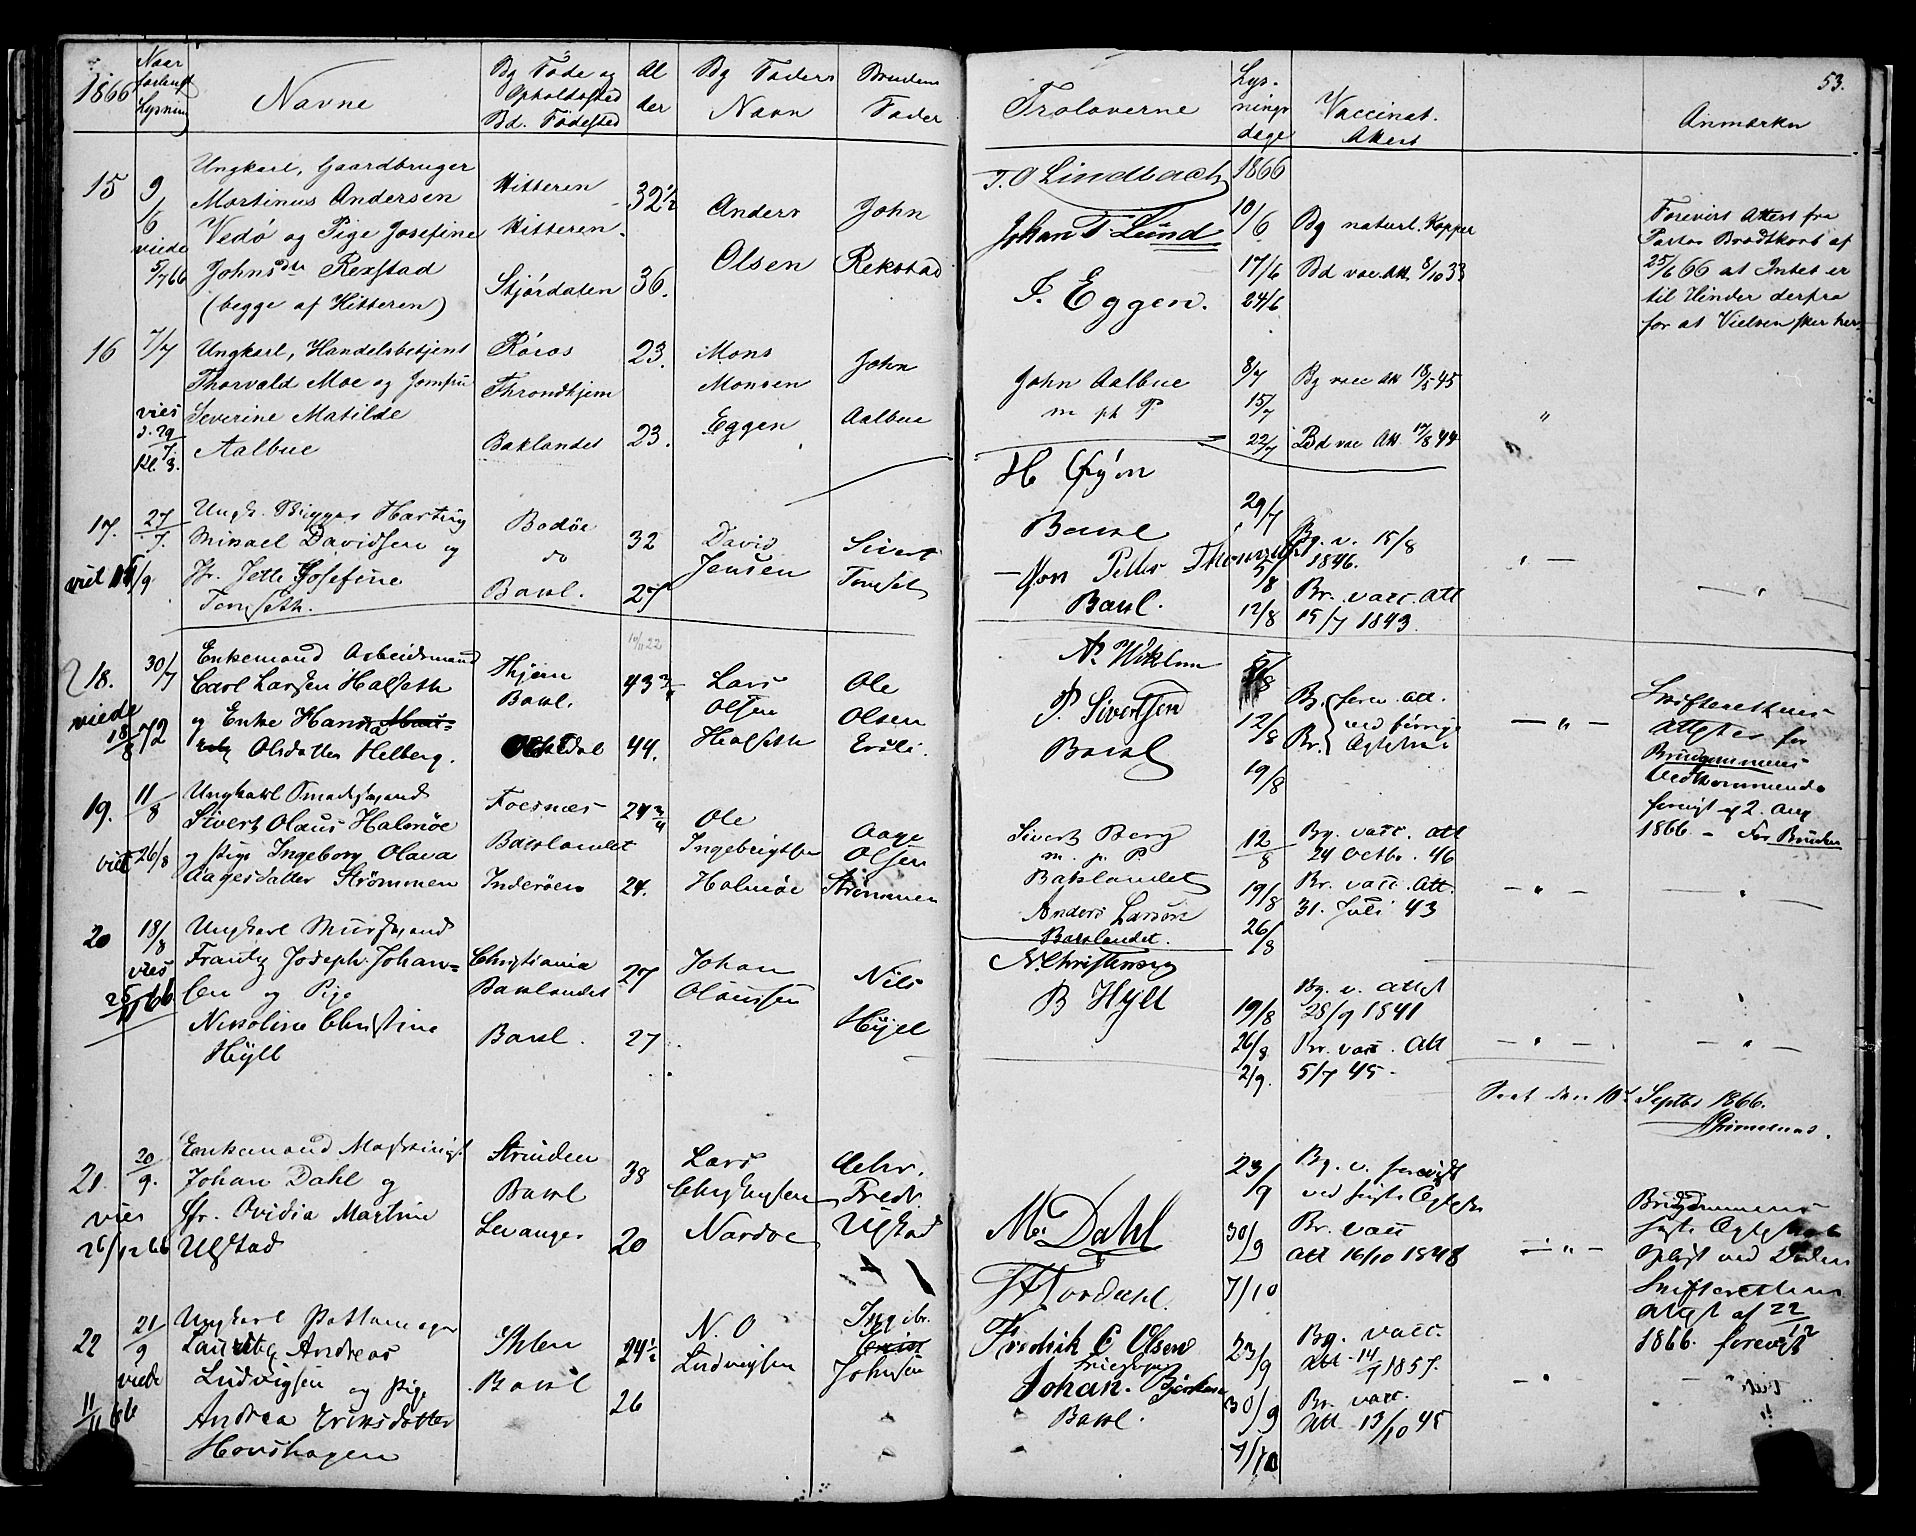 1866
Naar forlangt Lysning
Navne
Bg Føde og Opholdssted
Bd. Fødested
Alder
Bg Faders Navn
Brudens Fader
Troloverne
Lysningsdage
Vaccinat. Attest
Anmærkn
53.
15
9/6
viede
5/7 66
Ungkarl, Gaardbruger
Martinus Andersen
Vedø og Pige Josefine
Johnsdtr Rexstad
(begge af Hitteren)
Hitteren
Hitteren
Stjørdalen
32½
36.
Anders
Olsen
John
Rekstad
T. O Lindbach
Johan T. Lund
J. Eggen.
1866
10/6
17/6
24/6
Bg naturl. Kopper
Bd vac. Att. 8/10 33
Forevist Attest fra
Pastor Brodtkorb af
25/6 66 at Intet er
til Hinder derfra
for at Vielsen sker her
16
7/7
vies
d. 29/7
Kl. 3.
Ungkarl, Handelsbetjent
Thorvald Moe og Jomfru
Severine Matilde
Aalbue
Røros
Throndhjem
Baklandet
23.
23.
Mons
Monsen
Eggen
John
Aalbue
John Aalbue
m p. P
H Øyen
8/7
15/7
22/7
Bg vacc Att 18/5 45
Bd vac Att. 17/8 44
"
17.
27/7.
viet 11/9
Ungk. Bygger Hartvig
Misael Davidsen og
Jr. Jette Josefine
Tomseth.
Bodøe
do
Bakl.
32
27
David
Jensen
Sivert
Tomset
Bakl
Peter
Bakl.
29/7
5/8
12/8
Bg. v. 15/8
1846.
Br. vacc. Att
15/7 1843
18.
30/7
viede
18/8 72
Enkemand Arbeidsmand
Carl Larsen Halseth
og Enke Hanna
Olsdatter Helberg.
Thjem
Bakl.
Opdal
10/11 22
43¾
44.
Lars
Olsen
Halseth
Ole
Olsen
P. Sivertsen
Bakl
5/8
12/8
19/8
Bg. forev. Att.
Br. ved forrige
Ægteskab
— " —
Skifterettens
Attester for
Brudgommens
Vedkommende
forevist af 2. Aug
1866. — For Bruden
19.
11/8
viet 26/8
Ungkarl
Sivert Olaus Halmøe
og Pige Ingeborg Olava
Aagesdatter Strømmen
Foesnæs
Baklandet
Inderøen
24¾
24.
Ole
Ingebrigtsen
Halmøe
Aage
Olsen
Strømmen
Sivert Berg
m. p. P
Baklandet
Anders Larsen
Baklandet.
12/8
19/8
26/8
Bg. vacc. Att
24 Octbr. 46
Br. vacc. Att.
31. Juli 43
— " —
20
18/8
vies
25/11 66
Ungkarl Murersvend
Frantz Joseph Johan=
sen og Pige
Nikoline Christine
Hyll
Christiania
Baklandet
Bakl.
27
27
Johan
Olaussen
Nils
Høyel
N. Christensen
B Hyll
19/8
26/8
2/9.
Bg. v. Attest
28/9 1841
Br. vacc. Att
5/7 45 -
— " —
— " —
Seet den 10de Septbr 1866.
21.
20/9.
vies
26/12 66
Enkemand Maskinist
Johan Dahl og
Jfr. Ovidia Martine
Ulstad
Strinden
Bakl
Levanger
38
20
Lars
Christensen
Nardoe
Chr.
Fredr.
Ulstad
M. Dahl
23/9
30/9
7/10
Bg. v. forevist
ved første Ægtesk
Br. vacc
Att 16/10 1848
— " —
Brudgommens
første Ægteskab
opløst ved Døden
Skifterettens
Attest af 22/12
1866. forevist
22
21/9
viede
11/11 66
Ungkarl
Lauritz Andreas
Ludvigsen og Pige
Andrea Eriksdatter
Hovshagen
Ihlen
Bakl
24½
26
N. O
Ludvigsen
Ingebr.
Johnsen
Fredrik C Olsen
Johan. Bjerkan
Bakl.
23/9
30/9
7/10
Bg. vacc.
Att. 14/9 1857.
Br. vacc.
Att. 13/10 45